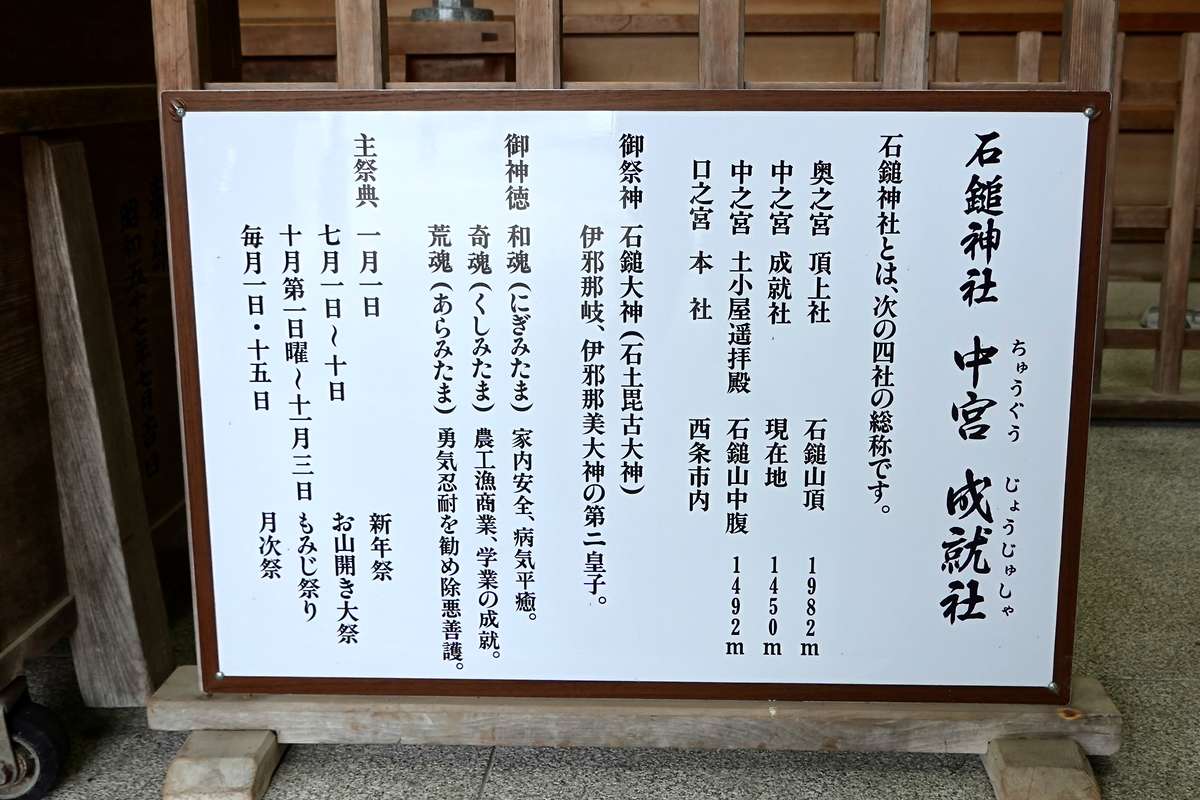 石鎚神社 中宮 成就社
ちゅうぐう じょうじゅしゃ
石鎚神社とは、次の四社の総称です。
奥之宮 頂上社 石鎚山頂 1982m
中之宮 成就社 現在地 1450m
中之宮 土小屋遥拝殿 石鎚山中腹 1492m
口之宮 本 社 西条市内
御祭神 石鎚大神(石土毘古大神)
伊邪那岐、伊邪那美大神の第二皇子。
御神徳 和魂(にぎみたま) 家内安全、病気平癒。
奇魂(くしみたま) 農工漁商業、学業の成就。
荒魂(あらみたま) 勇気忍耐を勧め除悪善護。
主祭典 一月一日 新年祭
七月一日~十日 お山開き大祭
十月第一日曜~十一月三日 もみじ祭り
毎月一日・十五日 月次祭